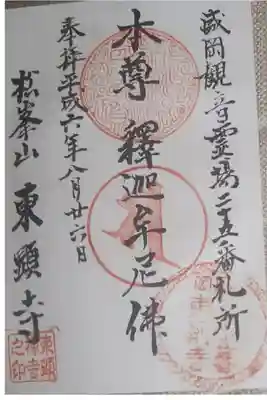 盛岡觀音靈場二十五番札所
本尊 釋迦牟尼佛
奉拝 平成六年八月廿六日
松峯山 東顯寺
東顯
禅寺
之印